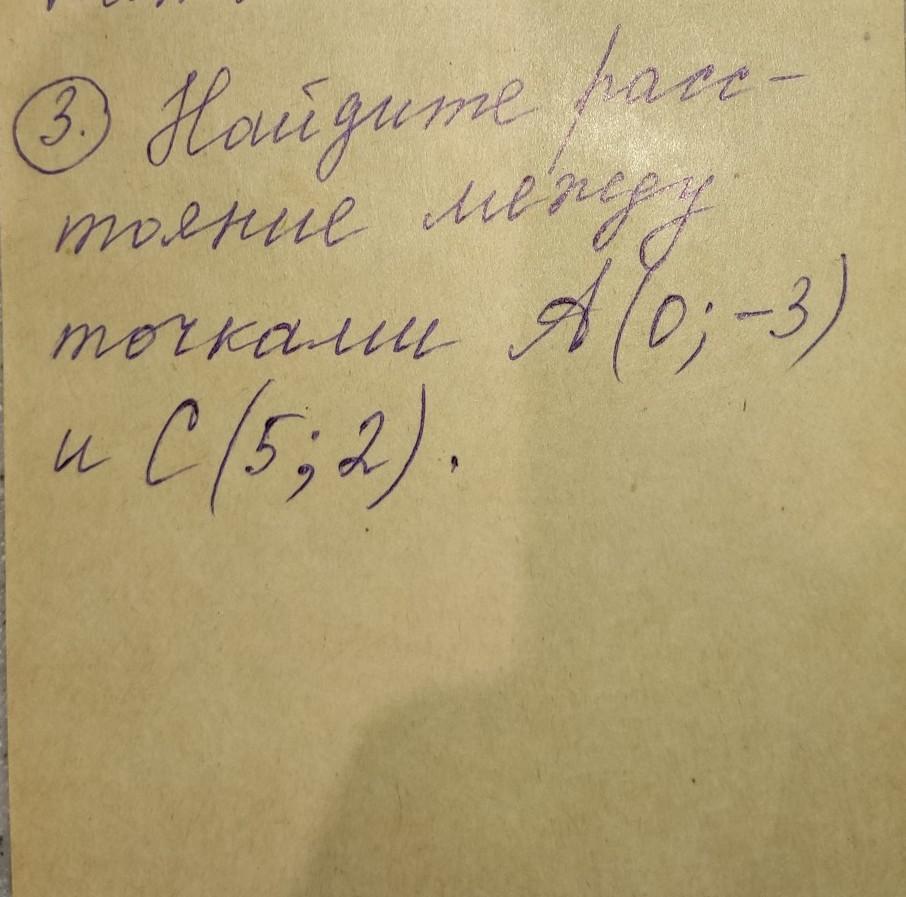 3. Найдите расс-
тояние между
точками А(0; -3)
и С(5; 2).